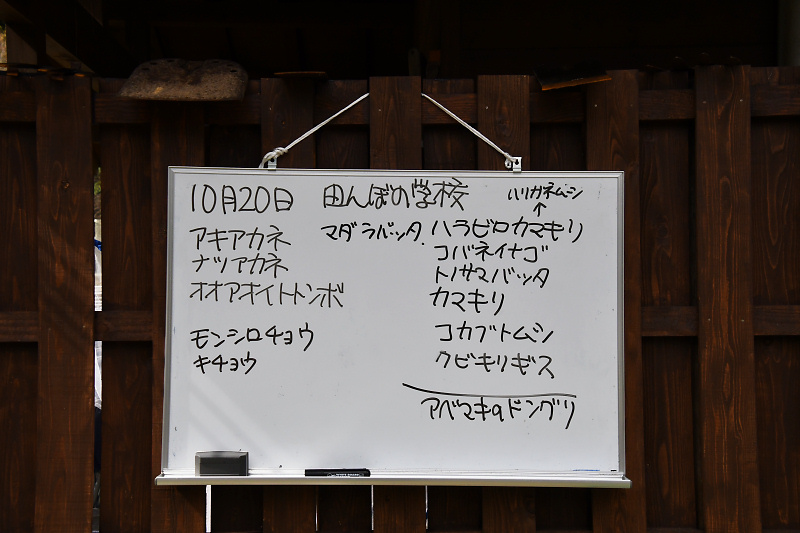 10月20日 田んぼの学校
ハリガネムシ
↑
アキアカネ マダラバッタ. ハラビロカマキリ
ナツアカネ コバネイナゴ
オオアオイトトンボ トノサマバッタ
カマキリ
モンシロチョウ コカブトムシ
キチョウ クビキリギス
アベマキのドングリ